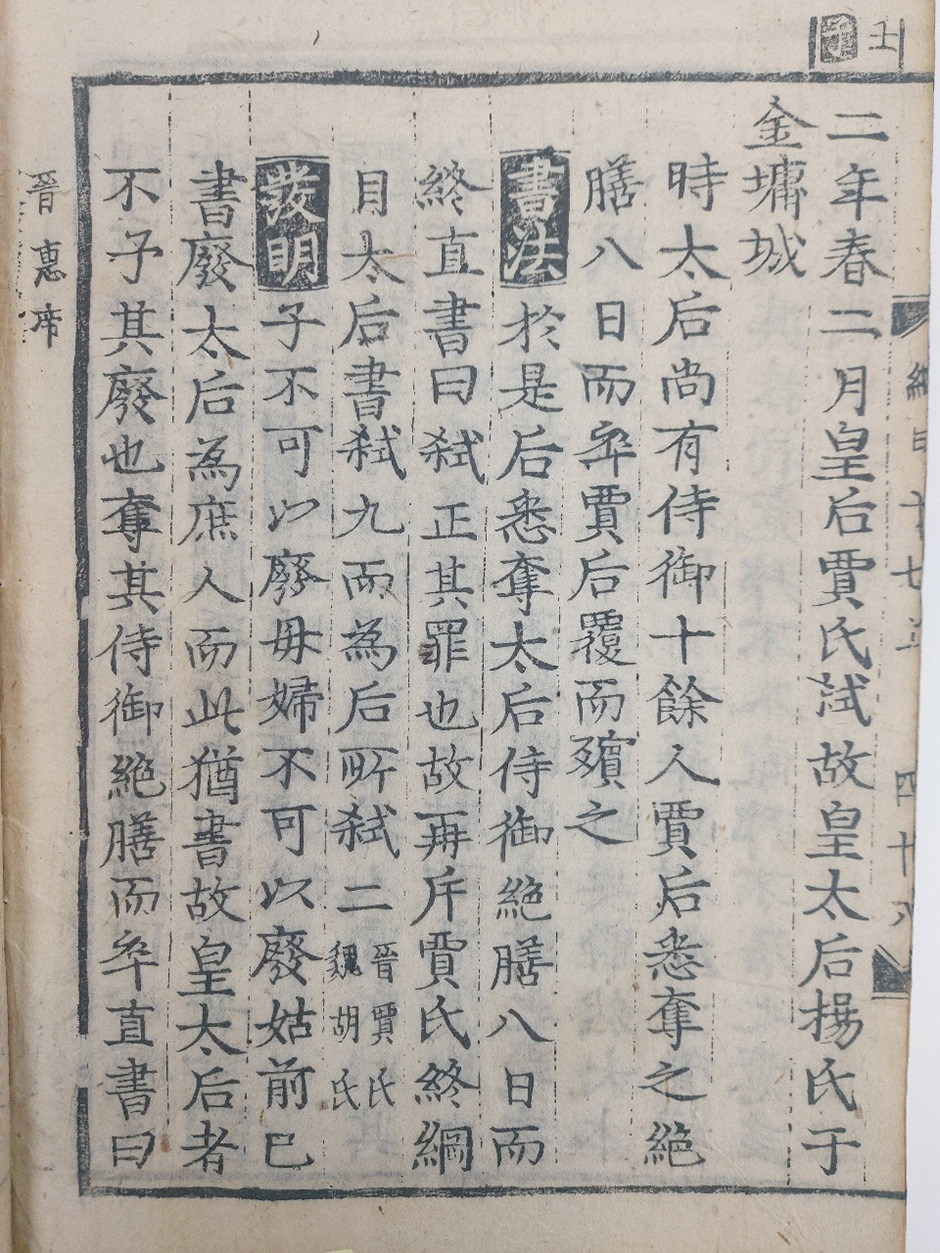 壬
二年春二月皇后賈氏弑故皇太后楊氏于
金墉城
時太后尚有侍御十餘人賈后悉奪之絶
膳八日而卒賈后覆而殯之
書法於是后悉奪太后侍御絶膳八日而
終直書曰弑正其罪也故再斥賈氏終綱
目太后書弑九而為后所弑二晉賈氏魏胡氏
發明子不可以廢母婦不可以廢姑前已
書廢太后為庶人而此猶書故皇太后者
不予其廢也奪其侍御絶膳而卒直書曰
晉惠帝
綱目十七 四十八